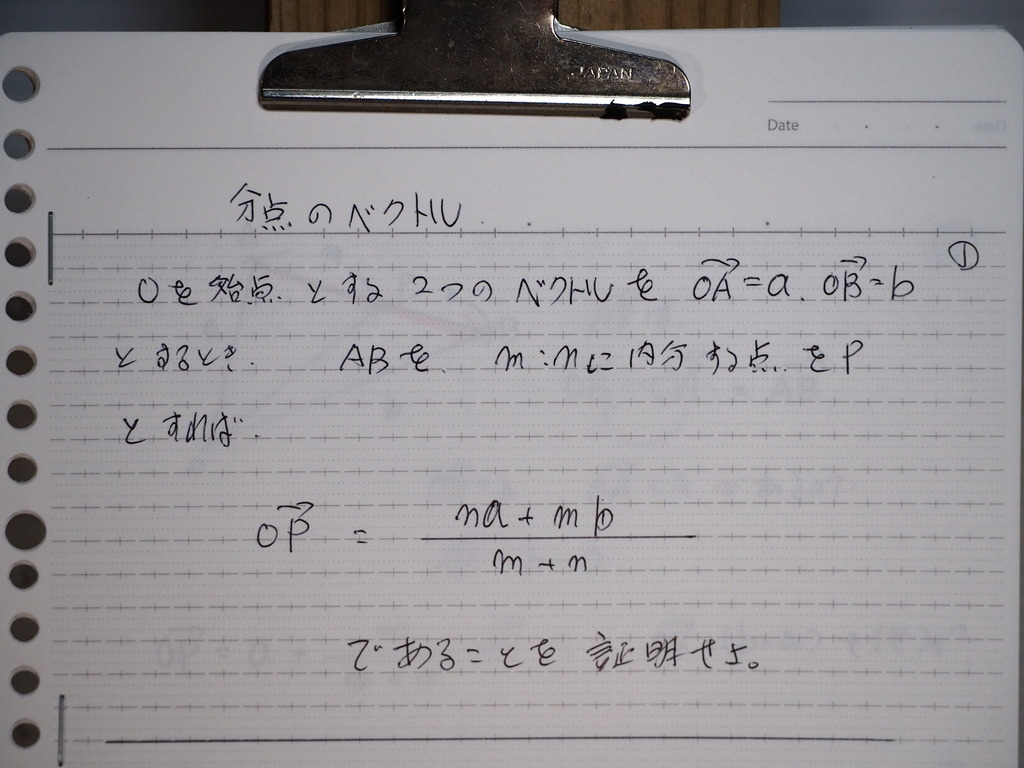 JAPAN
Date
分点のベクトル
①
Oを始点とする2つのベクトルを $\overrightarrow{OA}$=a. $\overrightarrow{OB}$=b
とするとき. ABを m:nに内分する点をP
とすれば.
$\overrightarrow{OP}$ = $\frac{na+mb}{m+n}$
であることを証明せよ。